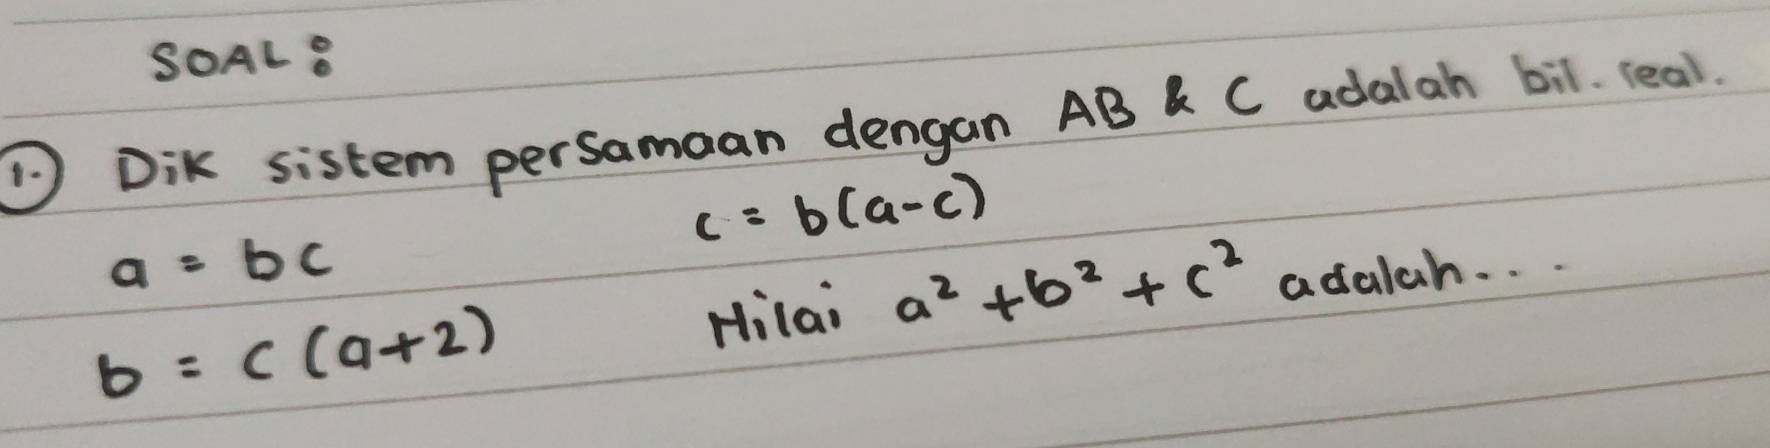 SOAL :
1. Dik sistem persamaan dengan AB & C adalah bil. real.
a = bc c = b(a-c)
b = c(a+2) Nilai a² + b² + c² adalah...